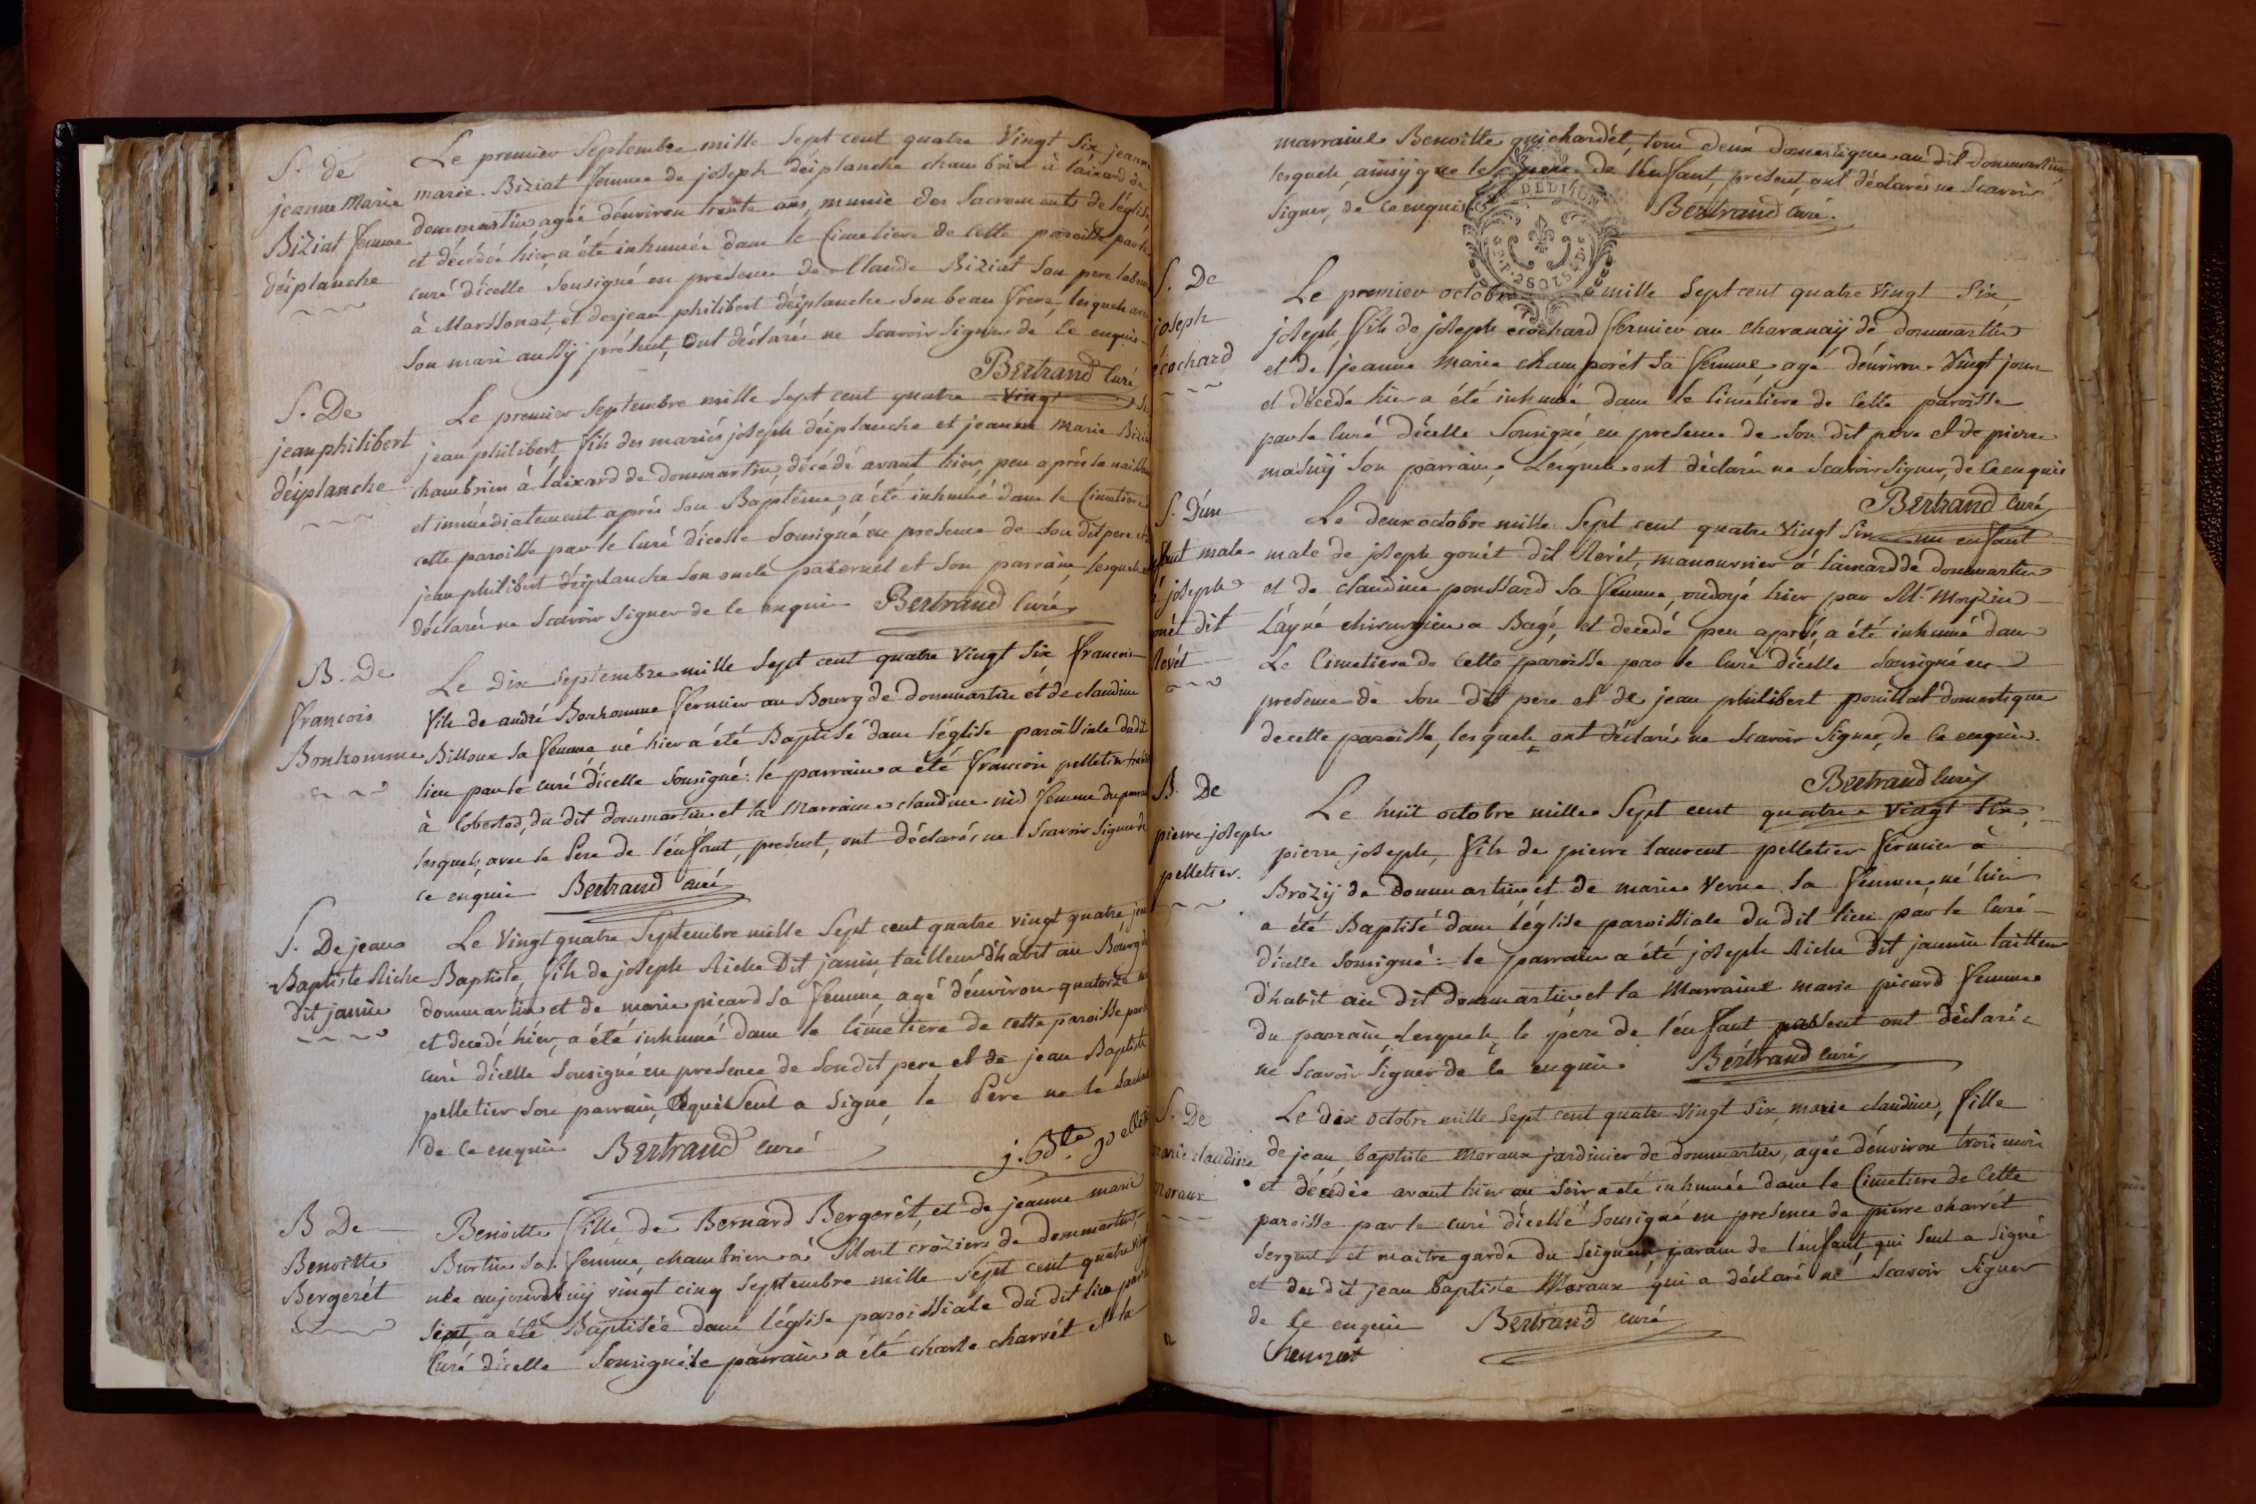 S. de
jeanne Marie
Biziat femme
déiplanche
Le premier Septembre mille Sept cent quatre Vingt Six jeanne
marie Biziat femme de joseph déiplanche chambrier à laixard de
dommartin agée d'environ trente ans, munie des Sacrements de l'église
et décédée hier, a été inhumée dans le Cimetiere de cette paroisse par le
curé d'icelle Sousigné en presence de Claude Biziat Son pere
à Marsonat, et de jean philibert déiplanche Son beau frere, lesquels avec
Son mari aussy présent, ont déclarés ne Scavoir Signer de ce enquis
Bertrand Curé
S. De
jean philibert
déiplanche
Le premier Septembre mille Sept cent quatre Vingt Six
jean philibert fils des mariés joseph déiplanche et jeanne Marie Biziat
chambriers à laixard de dommartin, décédé avant hier, peu après sa naissance
et immédiatement après son Baptême, a été inhumé dans le Cimetiere de
cette paroisse par le Curé d'icelle Sousigné en presence de Son dit pere et de
jean philibert déiplanche Son oncle paternel et Son parrain, lesquels ont
déclarés ne Scavoir Signer de ce enquis Bertrand Curé
B. De
françois
Bonhomme
Le dix Septembre mille Sept cent quatre Vingt Six françois
fils de andré Bonhomme fermier au Bourg de dommartin et de claudine
Billoux Sa femme né hier a été Baptisé dans l'église paroissiale dudit
lieu par le curé d'icelle Sousigné: le parrain a été françois pelletier
à Cobertod, du dit dommartin et la Marraine claudine nid femme du parrain
lesquels, avec le Pere de l'enfant, présent, ont déclarés ne Scavoir Signer de
ce enquis Bertrand curé
S. De jean
Baptiste Riche
dit janin
Le Vingt quatre Septembre mille Sept cent quatre vingt quatre jean
Baptiste, fils de joseph Riche Dit janin, tailleur d'habit au Bourg de
dommartin et de marie picard Sa femme, agé d'environ quatorze ans
et decedé hier, a été inhumé dans le Cimetiere de cette paroisse par le
curé d'icelle Sousigné en presence de Son dit pere et de jean Baptiste
pelletier Son parrain, lequel Seul a Signé, le Pere ne le Sachant
de ce enquis Bertrand Curé
j. Bte. pelletier
B De
Benoitte
Bergerét
Benoitte fille de Bernard Bergerét, et de jeanne marie
Burtin Sa femme, chambriers à Mont croziers de dommartin,
née aujourd'huy vingt cinq Septembre mille Sept cent quatre vingt
Sept a été Baptisée dans l'église paroissiale du dit lieu par le
Curé d'icelle Sousigné: le parrain a été charle charrét et la
marraine Benoitte guichardét, tous deux domestiques au dit dommartin
lesquels, ainsy que le pere de l'enfant, présent, ont déclarés ne Scavoir
Signer, de ce enquis Bertrand Curé
S. De
joseph
écochard
Le premier octobre mille Sept cent quatre Vingt Six,
joseph, fils de joseph ecochard fermier au charanaÿ de dommartin
et de jeanne Marie champorét Sa femme agé d'environ Vingt jours
et décédé hier a été inhumé dans le Cimetiere de Cette paroisse
par le Curé d'icelle Sousigné, en presence de Son dit pere et de pierre
masuÿ Son parrain, Lesquels ont déclarés ne Scavoir Signer, de ce enquis
Bertrand Curé
S. D'un
enfant male
de joseph
gonét dit
Revét
Le deux octobre mille Sept cent quatre Vingt Six un enfant
male de joseph gonét dit Revét, manouvrier à laixard de dommartin
et de claudine poussard Sa femme, ondoyé hier par Mr.
Layné chirurgien a Bagé, et decedé peu après, a été inhumé dans
Le Cimetiere de Cette paroisse par le Curé d'icelle Sousigné en
presence de Son dit pere et de jean philibert pouillat domestique
de cette paroisse, lesquels ont déclarés ne Scavoir Signer, de ce enquis.
Bertrand Curé
B. De
pierre joseph
pelletier.
Le huit octobre mille Sept cent quatre Vingt Six,
pierre joseph, fils de pierre laurent pelletier fermier à
Brozÿ de dommartin et de marie Verne Sa femme, né hier
a été Baptisé dans l'église paroissiale du dit lieu par le Curé
d'icelle Sousigné: le parrain a été joseph Riche dit jannin tailleur
d'habit au dit dommartin et la Marraine marie picard femme
du parrain Lesquels, le pere de l'enfant présent ont déclarés
ne Scavoir Signer de ce enquis. Bertrand Curé
S. De
marie claudine
Moraux
Le dix octobre mille Sept cent quatre Vingt Six, marie claudine, fille
de jean baptiste Moraux jardinier de dommartin, agée d'environ trois mois
et décédée avant hier au Soir a été inhumée dans le Cimetiere de Cette
paroisse par le curé d'icelle Sousigné en presence de pierre charrét
Sergent et maitre garde du Seigneur parain de l'enfant qui Seul a Signé
et du dit jean baptiste Moraux qui a déclaré ne Scavoir Signer
de Ce enquis Bertrand curé